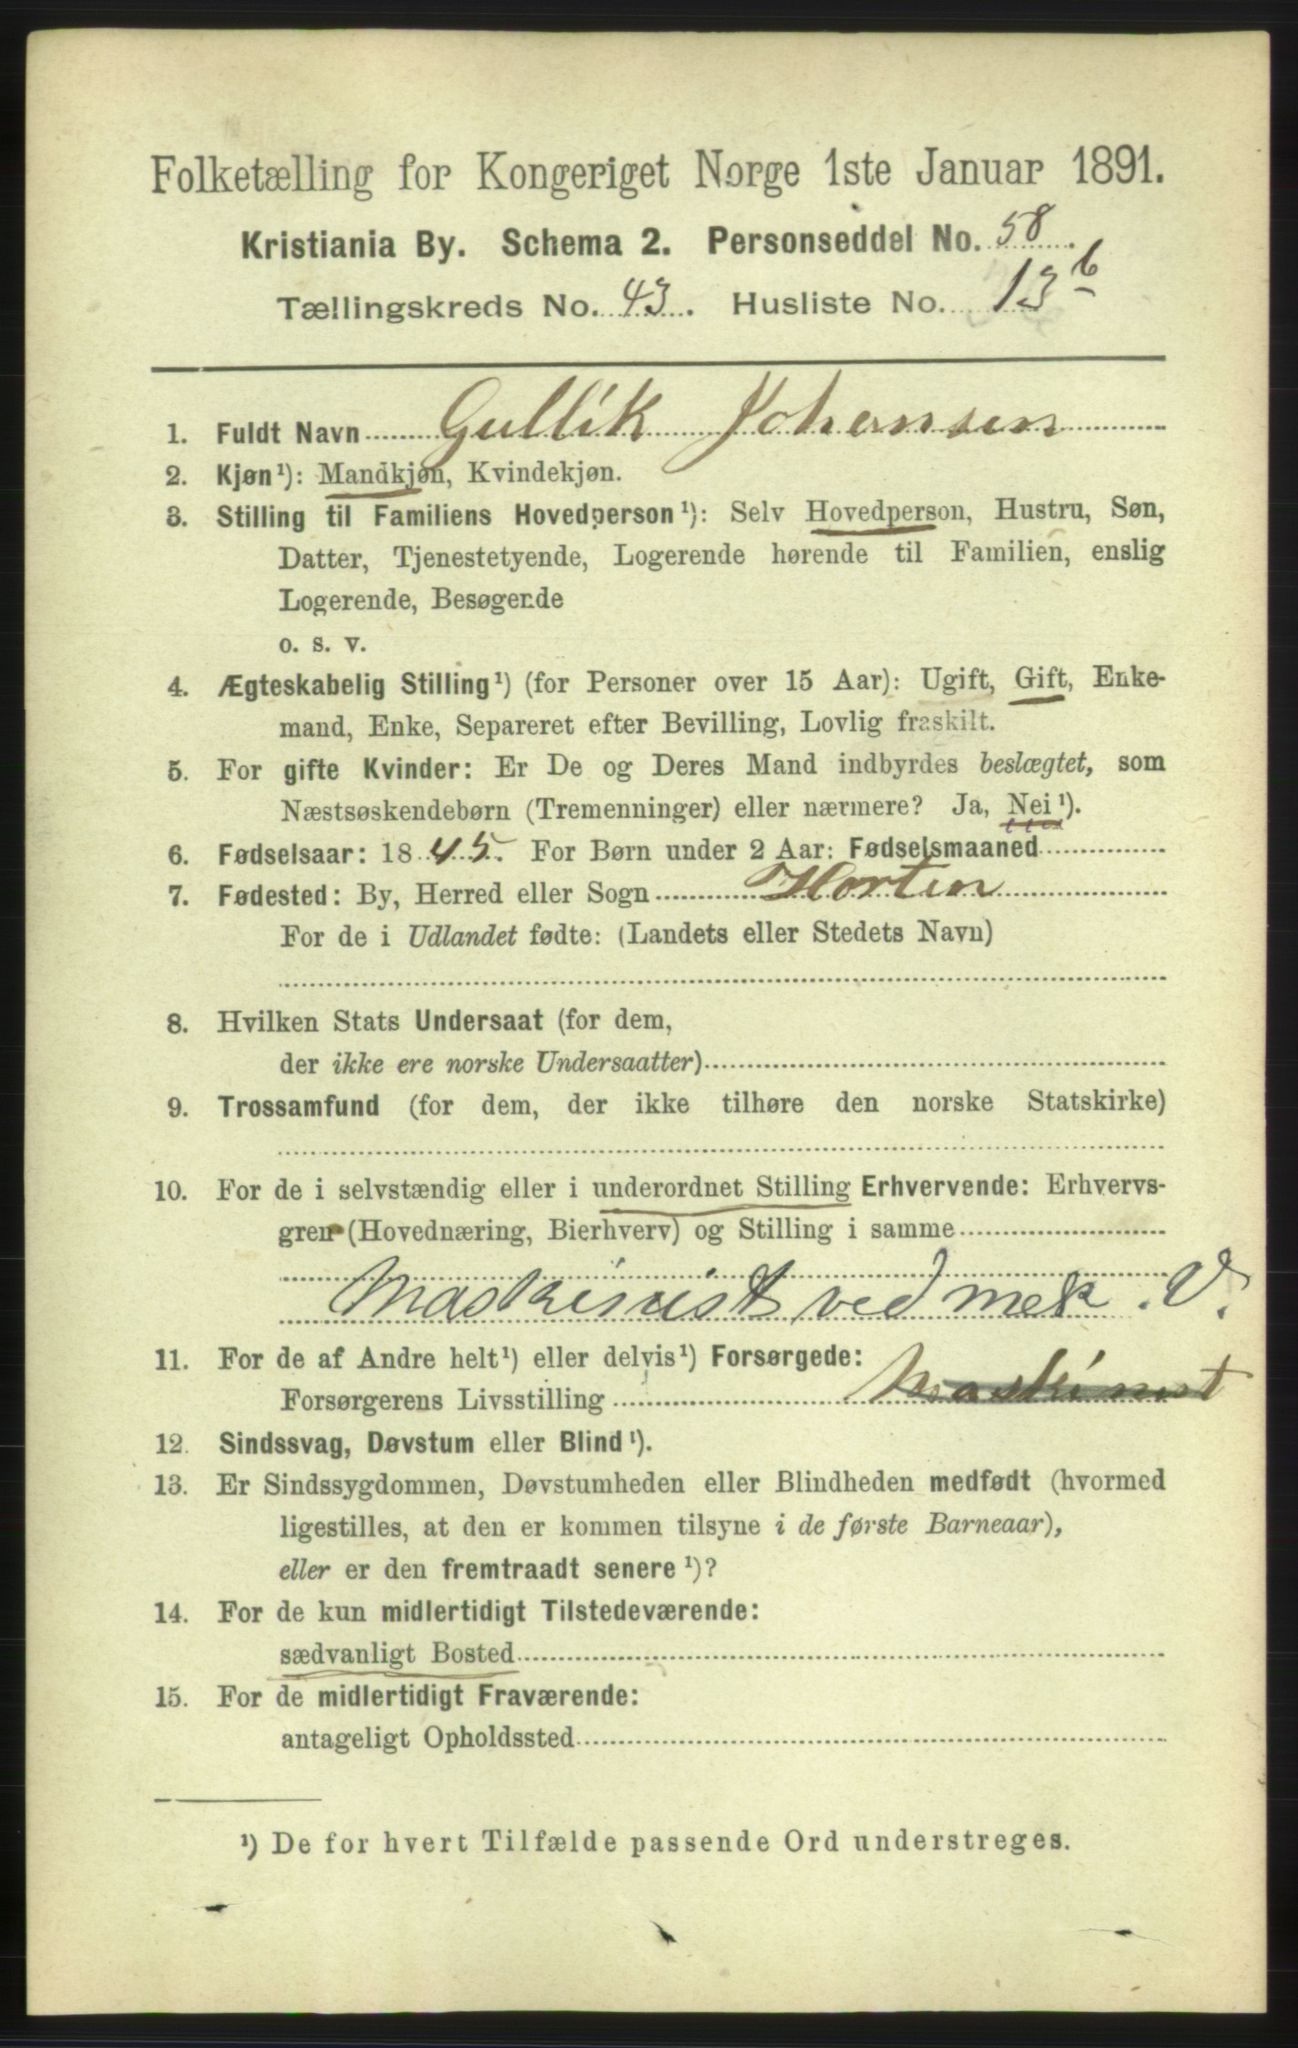 Folketælling for Kongeriget Norge 1ste Januar 1891.
Kristiania By. Schema 2. Personseddel No. 58.
Tællingskreds No. 43. Husliste No. 13b
1. Fuldt Navn Gullik Johansen
2. Kjøn¹): Mandkjøn, Kvindekjøn.
3. Stilling til Familiens Hovedperson¹): Selv Hovedperson, Hustru, Søn,
Datter, Tjenestetyende, Logerende hørende til Familien, enslig
Logerende, Besøgende
o. s. v.
4. Ægteskabelig Stilling¹) (for Personer over 15 Aar): Ugift, Gift, Enke-
mand, Enke, Separeret efter Bevilling, Lovlig fraskilt.
5. For gifte Kvinder: Er De og Deres Mand indbyrdes beslægtet, som
Næstsøskendebørn (Tremenninger) eller nærmere? Ja, Nei¹).
6. Fødselsaar: 1845. For Børn under 2 Aar: Fødselsmaaned
7. Fødested: By, Herred eller Sogn Horten
For de i Udlandet fødte: (Landets eller Stedets Navn)
8. Hvilken Stats Undersaat (for dem,
der ikke ere norske Undersaatter)
9. Trossamfund (for dem, der ikke tilhøre den norske Statskirke)
10. For de i selvstændig eller i underordnet Stilling Erhvervende: Erhvervs-
gren (Hovednæring, Bierhverv) og Stilling i samme
Maskinist ved mek. V.
11. For de af Andre helt¹) eller delvis¹) Forsørgede:
Forsørgerens Livsstilling Maskinist
12. Sindssvag, Døvstum eller Blind¹).
13. Er Sindssygdommen, Døvstumheden eller Blindheden medfødt (hvormed
ligestilles, at den er kommen tilsyne i de første Barneaar),
eller er den fremtraadt senere¹)?
14. For de kun midlertidigt Tilstedeværende:
sædvanligt Bosted
15. For de midlertidigt Fraværende:
antageligt Opholdssted
¹) De for hvert Tilfælde passende Ord understreges.